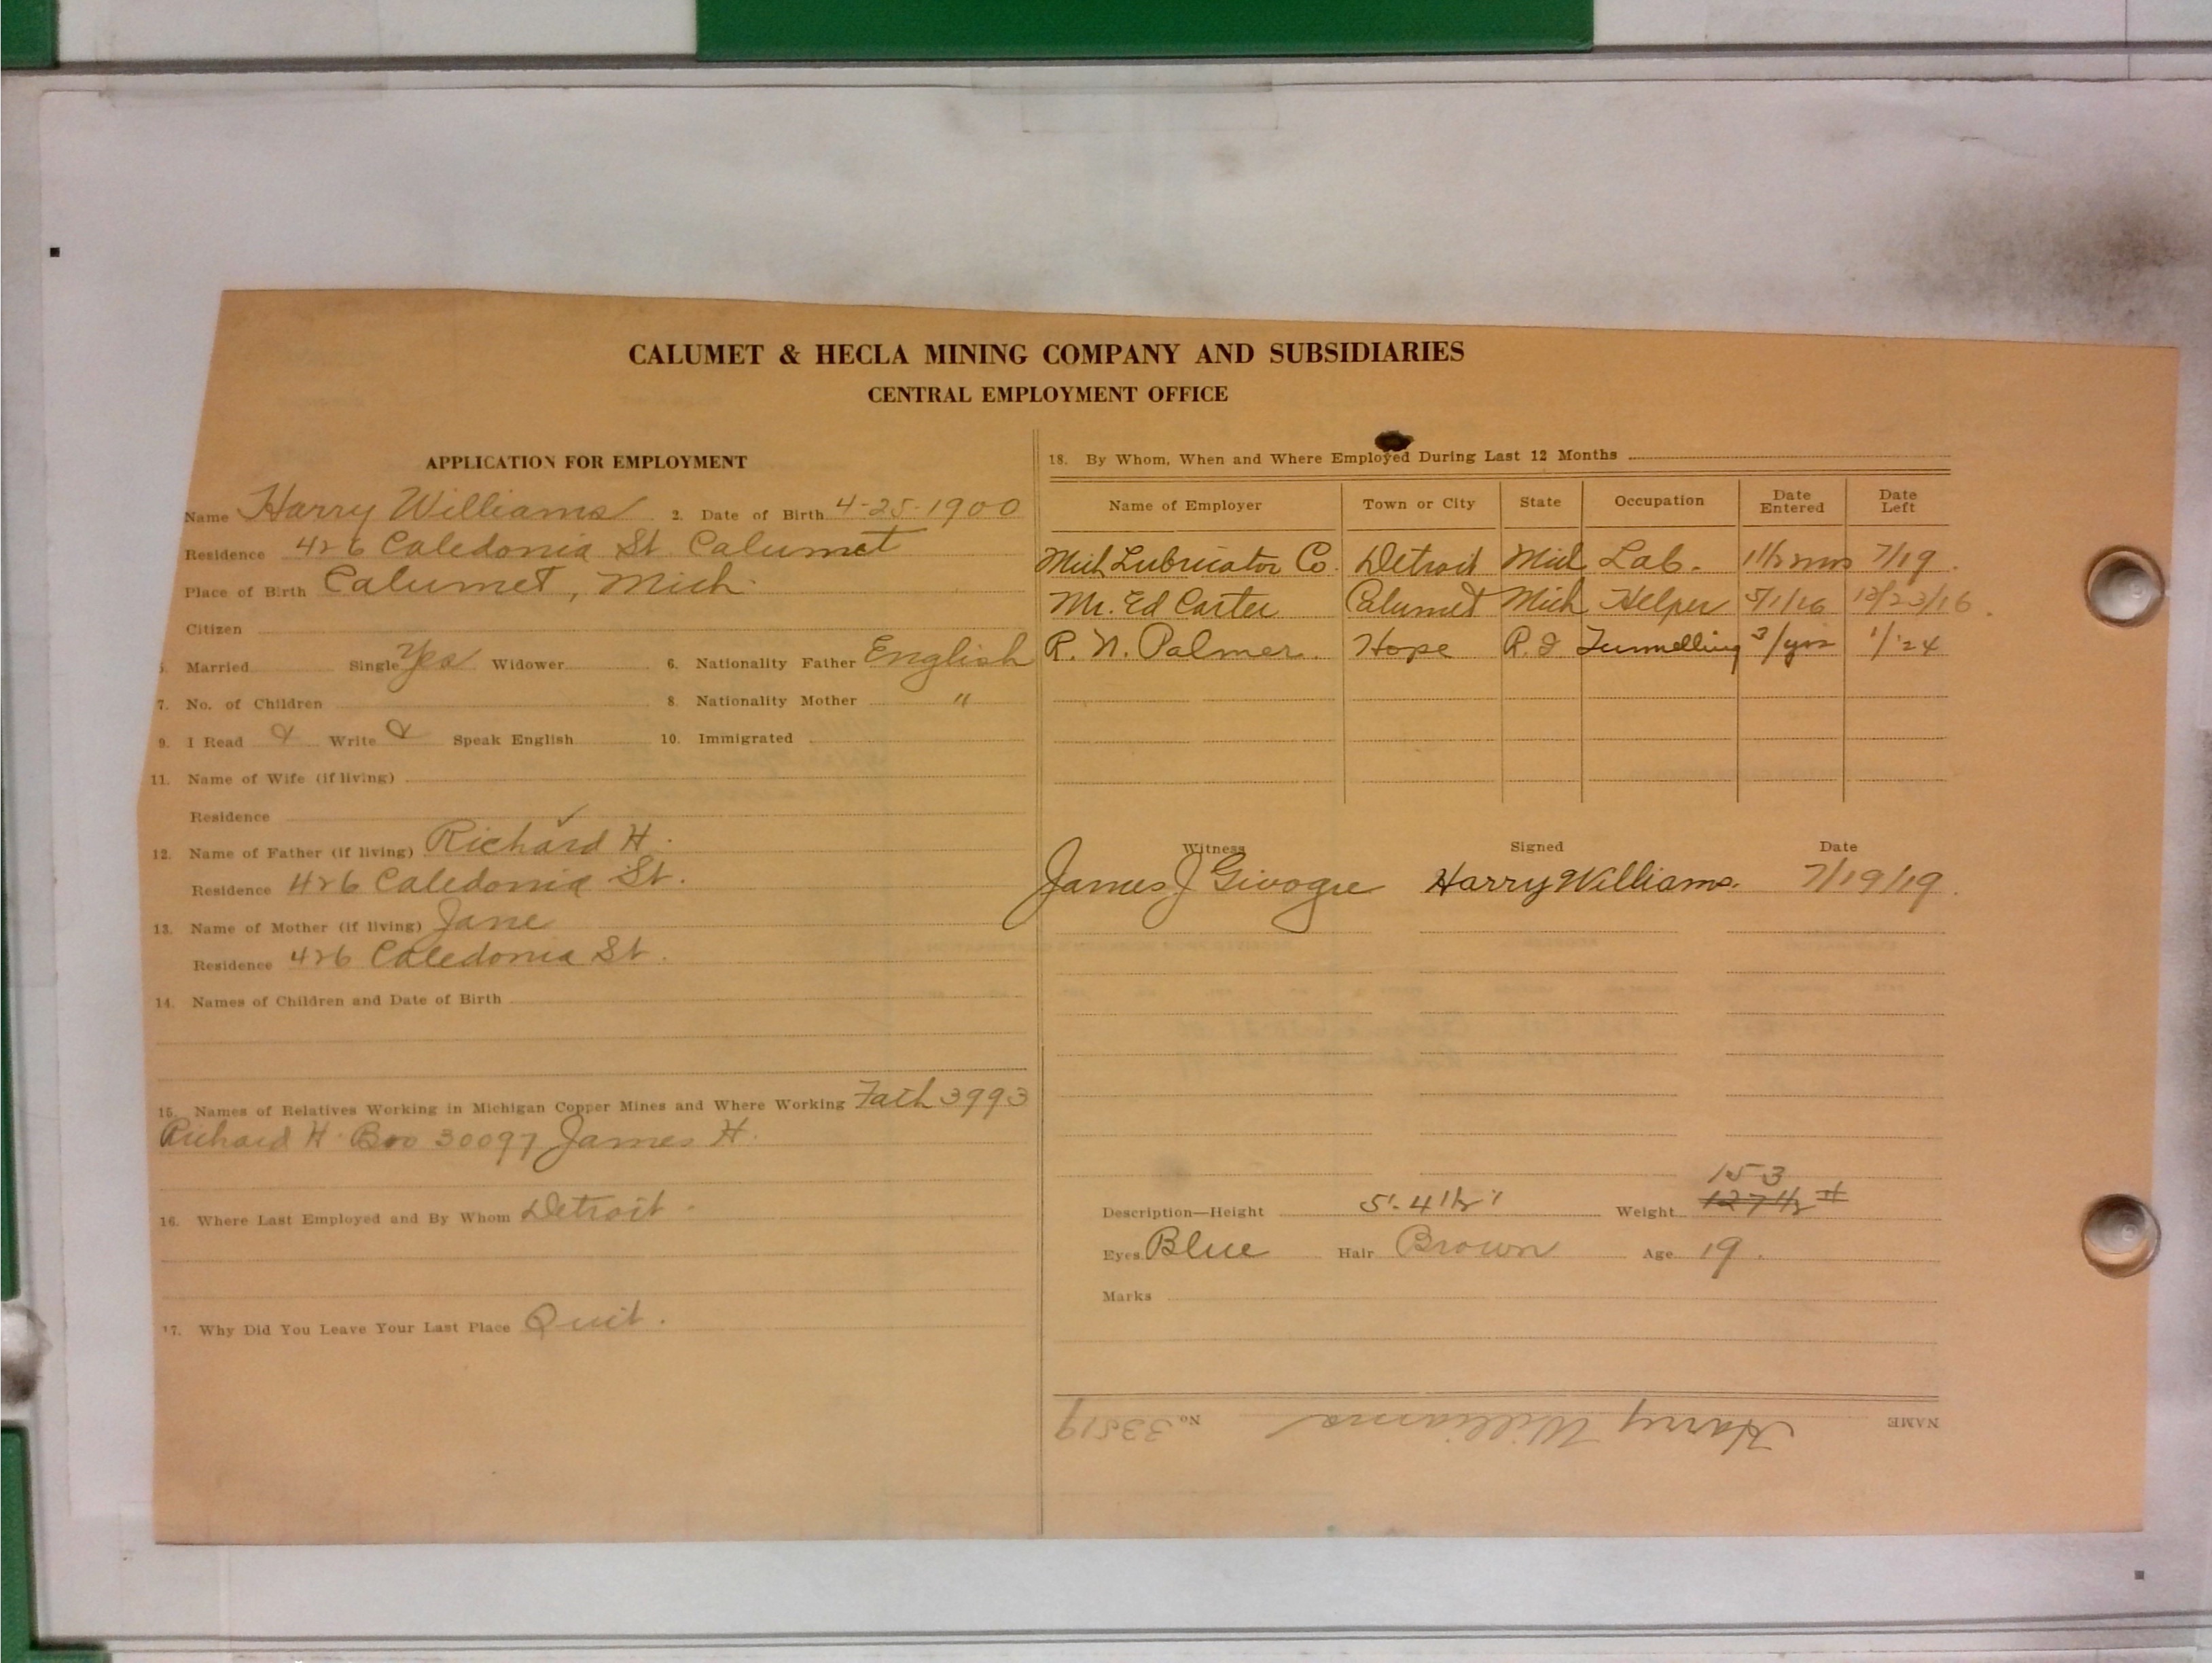 CALUMET & HECLA MINING COMPANY AND SUBSIDIARIES
CENTRAL EMPLOYMENT OFFICE
APPLICATION FOR EMPLOYMENT
Name Harry Williams 2. Date of Birth 4-25-1900
Residence 426 Caledonia St Calumet
Place of Birth Calumet, Mich.
Citizen
5. Married Single Yes Widower 6. Nationality Father English
7. No. of Children 8. Nationality Mother "
9. I Read Write Speak English 10. Immigrated
11. Name of Wife (if living)
Residence
12. Name of Father (if living) Richard H.
Residence 426 Caledonia St.
13. Name of Mother (if living) Jane
Residence 426 Caledonia St.
14. Names of Children and Date of Birth
15. Names of Relatives Working in Michigan Copper Mines and Where Working Fath 3993
Richard H. Bro 30097 James H.
16. Where Last Employed and By Whom Detroit.
17. Why Did You Leave Your Last Place Quit.
18. By Whom, When and Where Employed During Last 12 Months
Name of Employer Town or City State Occupation Date Entered Date Left
Mich Lubricator Co. Detroit Mich Lab. 1 1/2 mos 7/19.
Mr. Ed Carter Calumet Mich Helper 5/1/16 12/23/16.
R. N. Palmer. Hope R.I Tunnelling 3/yrs 1/'24
Witness Signed Date
James J Harry Williams. 7/19/19.
153
Description—Height 5'-4 1/2" Weight 127 1/2 #
Eyes Blue Hair Brown Age 19.
Marks
NAME Harry Williams No. 33519